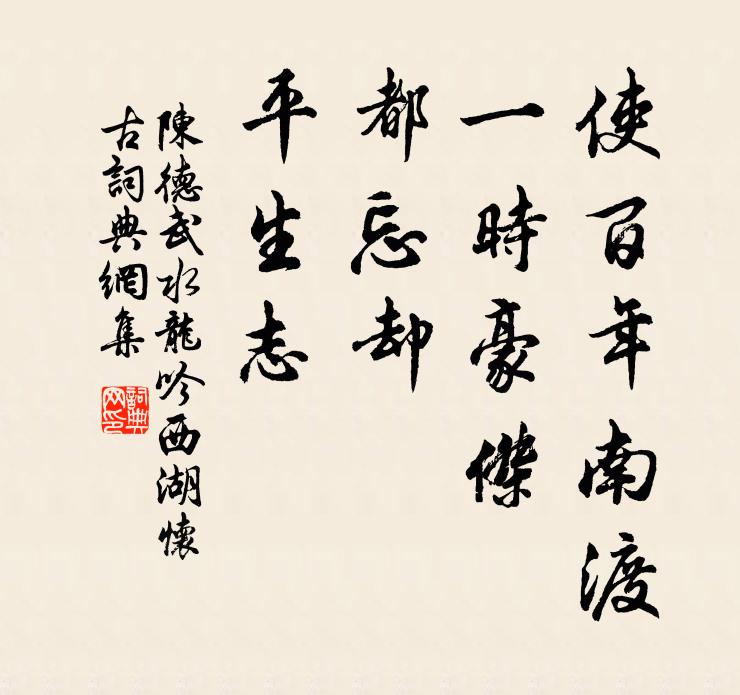 使百年南渡
一時豪傑
都忘却
平生志
陳德武水龍吟西湖懷
古詞典網集
詞典网印